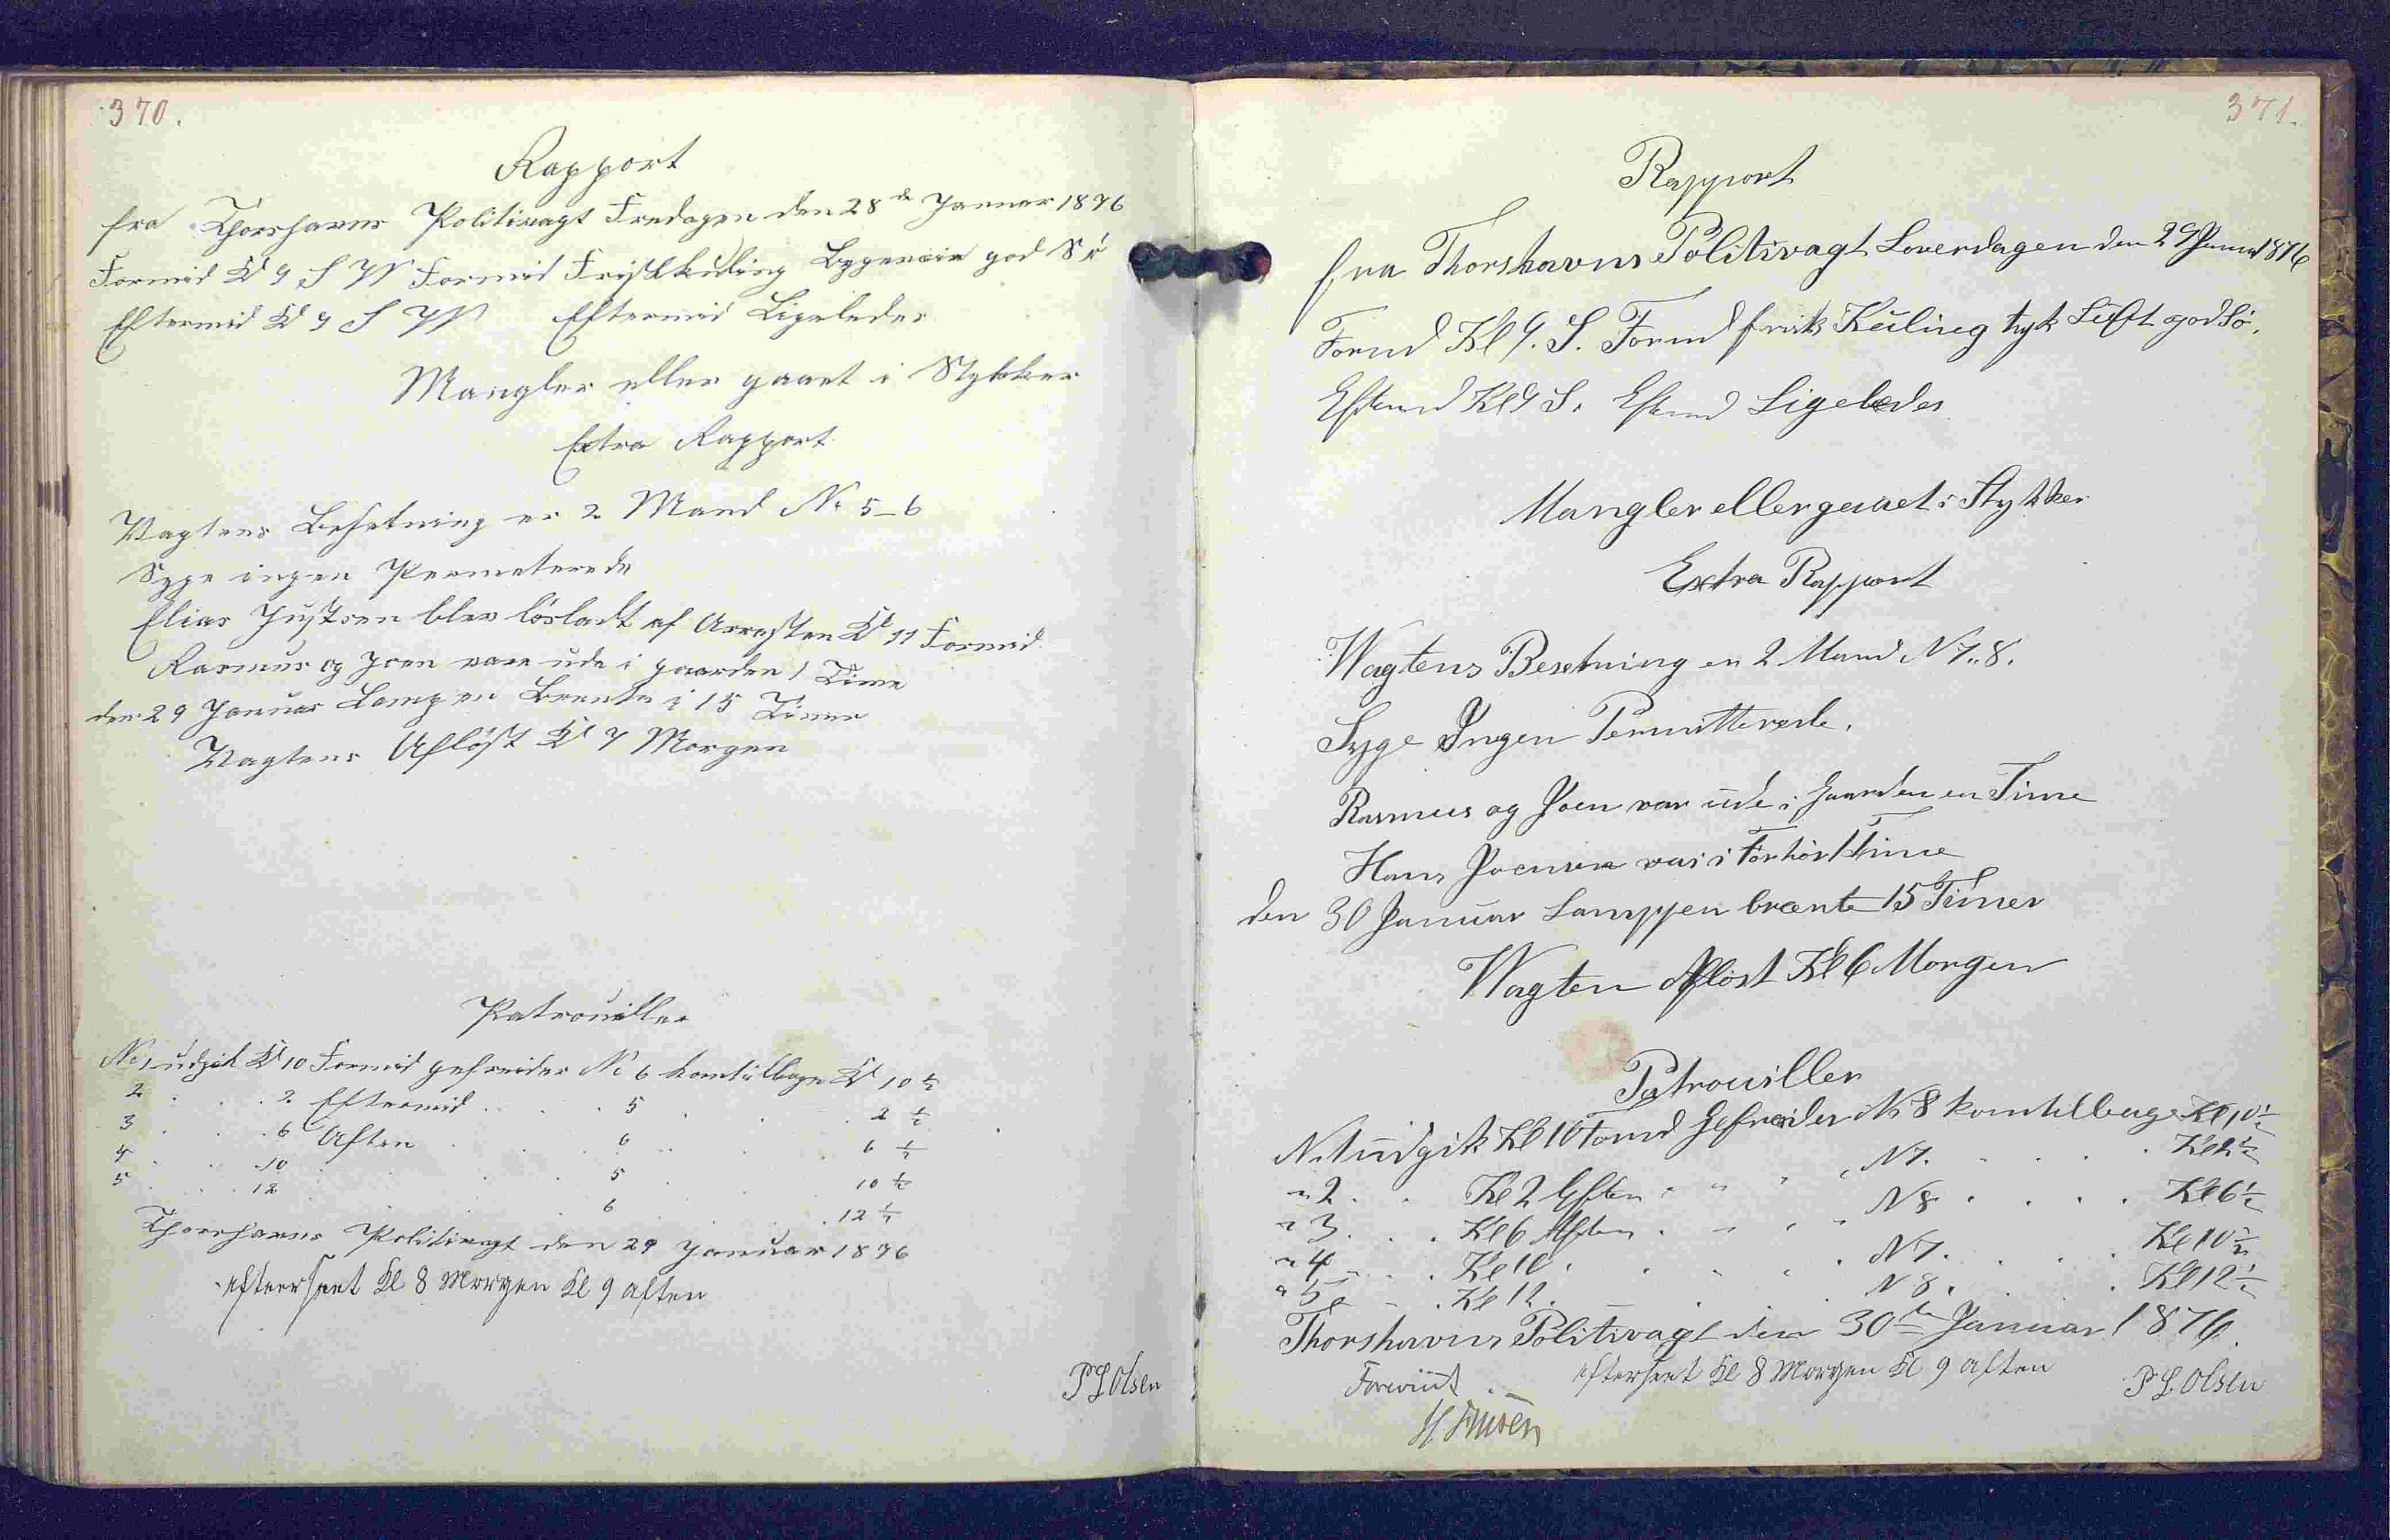 370.
Rapport
fra Thorshavns Politivagt Fredagen den 28de Januar 1876
Formid Kl 9 S W Formid Frisk kuling Bygeveir god Sö
Eftermid Kl 9 S W Eftermid Ligeledes
Mangler eller gaaet i Stykker
Extra Rapport
Vagtens Besetning er 2 Mand No 5-6
Syge ingen Permeterede
Elias Justsen blev lösladt af Arresten Kl 11 Formid
Rasmus og Joen vare ude i gaarden 1 Time
den 29 Januar Lampen Brente i 15 Timer
Vagtens Aflöst Kl 7 Morgen
Patrouiller
No 1 udgik Kl 10 Formid gefreider No 6 kom tilbage Kl 10 ½
2 . . . 2 Eftermid . . . 5 . . . 2 ½
3 . . . 6 Aften . . . 6 . . . 6 ½
4 . . . 10 . . . 5 . . . 10 ½
5 . . . 12 . . . 6 . . . 12 ½
Thorshavns Politivagt den 29 Januar 1876
efterseet Kl 8 Morgen Kl 9 aften
P L Olsen
371.
Rapport
fra Thorshavns Politivagt Löverdagen den 29 Januar 1876
Formd Kl 9. S. Formd frisk Kuling tyk Luft god Sö.
Eftemd Kl 9 S. Eftemd Ligeledes
Mangler eller gaaet i Stykker
Extra Rapport
Wagtens Besetning er 2 Mand N 7..8.
Syge Ingen Permitterede.
Rasmus og Joen var ude i Gaarden en Time
Hans Joensen var i Forhör 1 Time
den 30 Januar Lamppen brænte 15 Timer
Wagten Aflöst Kl 6 Morgen
Patrouiller
N. 1 udgik Kl 10 Formd Gefreider N 8 kom tilbage Kl 10 ½
" 2 . . Kl 2 Eften " " " N 7. . . . Kl 2 ½
" 3 . . . Kl 6 Aften . " " " N 8 . . . . Kl 6 ½
" 4 . . . Kl 10 . . . . . N 7. . . . Kl 10 ½
" 5 . . . Kl 12 . . . . N 8. . . . Kl 12 ½
Thorshavns Politivagt den 30te Januar 1876.
Forevist efterseet Kl 8 Morgen Kl 9 aften P L. Olsen
H Finsen